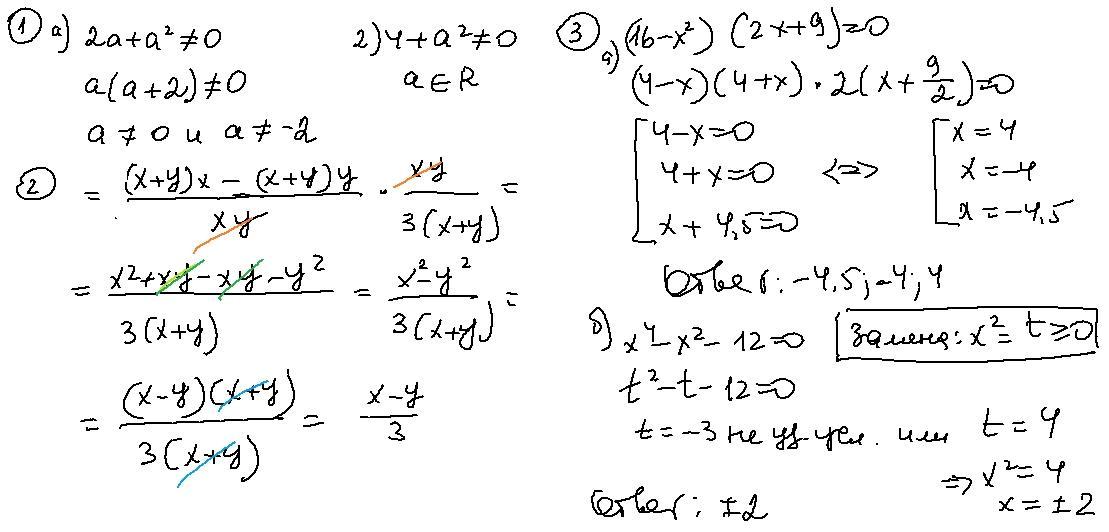 ① а) 2a+a² ≠ 0
a(a+2) ≠ 0
a ≠ 0 и a ≠ -2
2) 4+a² ≠ 0
a ∈ R
② = ((x+y)x - (x+y)y)/(xy) · (xy)/(3(x+y)) =
= (x²+xy-xy-y²)/(3(x+y)) = (x²-y²)/(3(x+y)) =
= ((x-y)(x+y))/(3(x+y)) = (x-y)/3
③ а) (16-x²) (2x+9)=0
(4-x)(4+x) · 2(x+9/2)=0
[4-x=0 [x=4
4+x=0 <=> x=-4
x+4,5=0 x=-4,5
Ответ: -4,5; -4; 4
б) x⁴-x²-12=0 Замена: x²=t≥0
t²-t-12=0
t=-3 не уд. усл. или t=4
=> x²=4
x=±2
Ответ: ±2